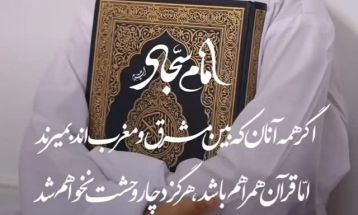 امام سجاد
اگر همه آنان که بین مشرق و مغرب اند، بمیرند
اما قرآن همراهم باشد، هرگز دچار وحشت نخواهم شد